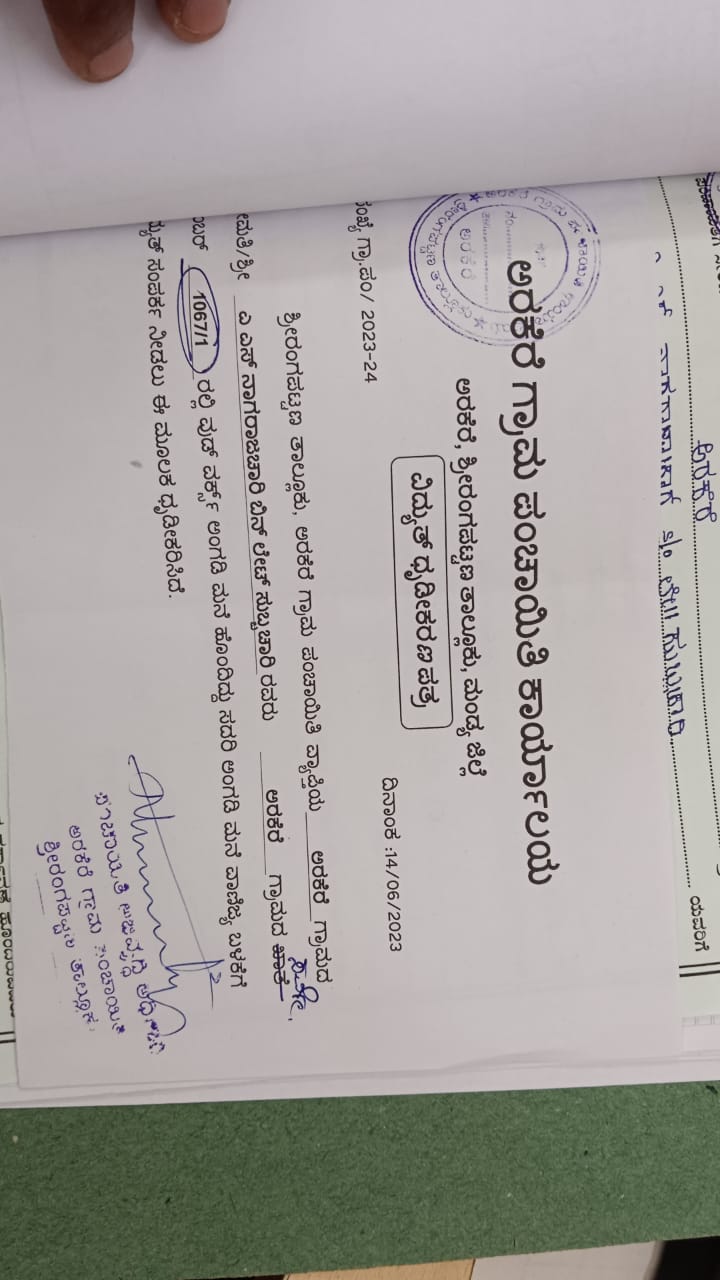 ಅರಕೆರೆ
ಯವರಿಗೆ
ಅರಕೆರೆ ಗ್ರಾಮ ಪಂಚಾಯಿತಿ ಕಾರ್ಯಾಲಯ
ಅರಕೆರೆ, ಶ್ರೀರಂಗಪಟ್ಟಣ ತಾಲ್ಲೂಕು, ಮಂಡ್ಯ ಜಿಲ್ಲೆ
ಅರಕೆರೆ
ವಿದ್ಯುತ್ ಧೃಡೀಕರಣ ಪತ್ರ
ಗ್ರಾ.ಪಂ/ 2023-24 ದಿನಾಂಕ :14/06/2023
ಶ್ರೀರಂಗಪಟ್ಟಣ ತಾಲ್ಲೂಕು, ಅರಕೆರೆ ಗ್ರಾಮ ಪಂಚಾಯಿತಿ ವ್ಯಾಪ್ತಿಯ ಅರಕೆರೆ ಗ್ರಾಮದ
ಮತಿ/ಶ್ರೀ ಎ ಎಸ್ ನಾಗರಾಜಚಾರಿ ಬಿನ್ ಲೇಟ್ ಸುಬ್ಬಚಾರಿ ರವರು ಅರಕೆರೆ ಗ್ರಾಮದ ಖಾತೆ
ಂಬರ್ 1067/1 ರಲ್ಲಿ ವುಡ್ ವರ್ಕ್ಸ್ ಅಂಗಡಿ ಮನೆ ಹೊಂದಿದ್ದು ಸದರಿ ಅಂಗಡಿ ಮನೆ ವಾಣಿಜ್ಯ ಬಳಕೆಗೆ
ದ್ಯುತ್ ಸಂಪರ್ಕ ನೀಡಲು ಈ ಮೂಲಕ ಧೃಡೀಕರಿಸಿದೆ.
ಪಂಚಾಯಿತಿ ಅಭಿವೃದ್ಧಿ ಅಧಿಕಾರಿ
ಅರಕೆರೆ ಗ್ರಾಮ ಪಂಚಾಯಿತಿ
ಶ್ರೀರಂಗಪಟ್ಟಣ ತಾಲ್ಲೂಕು.